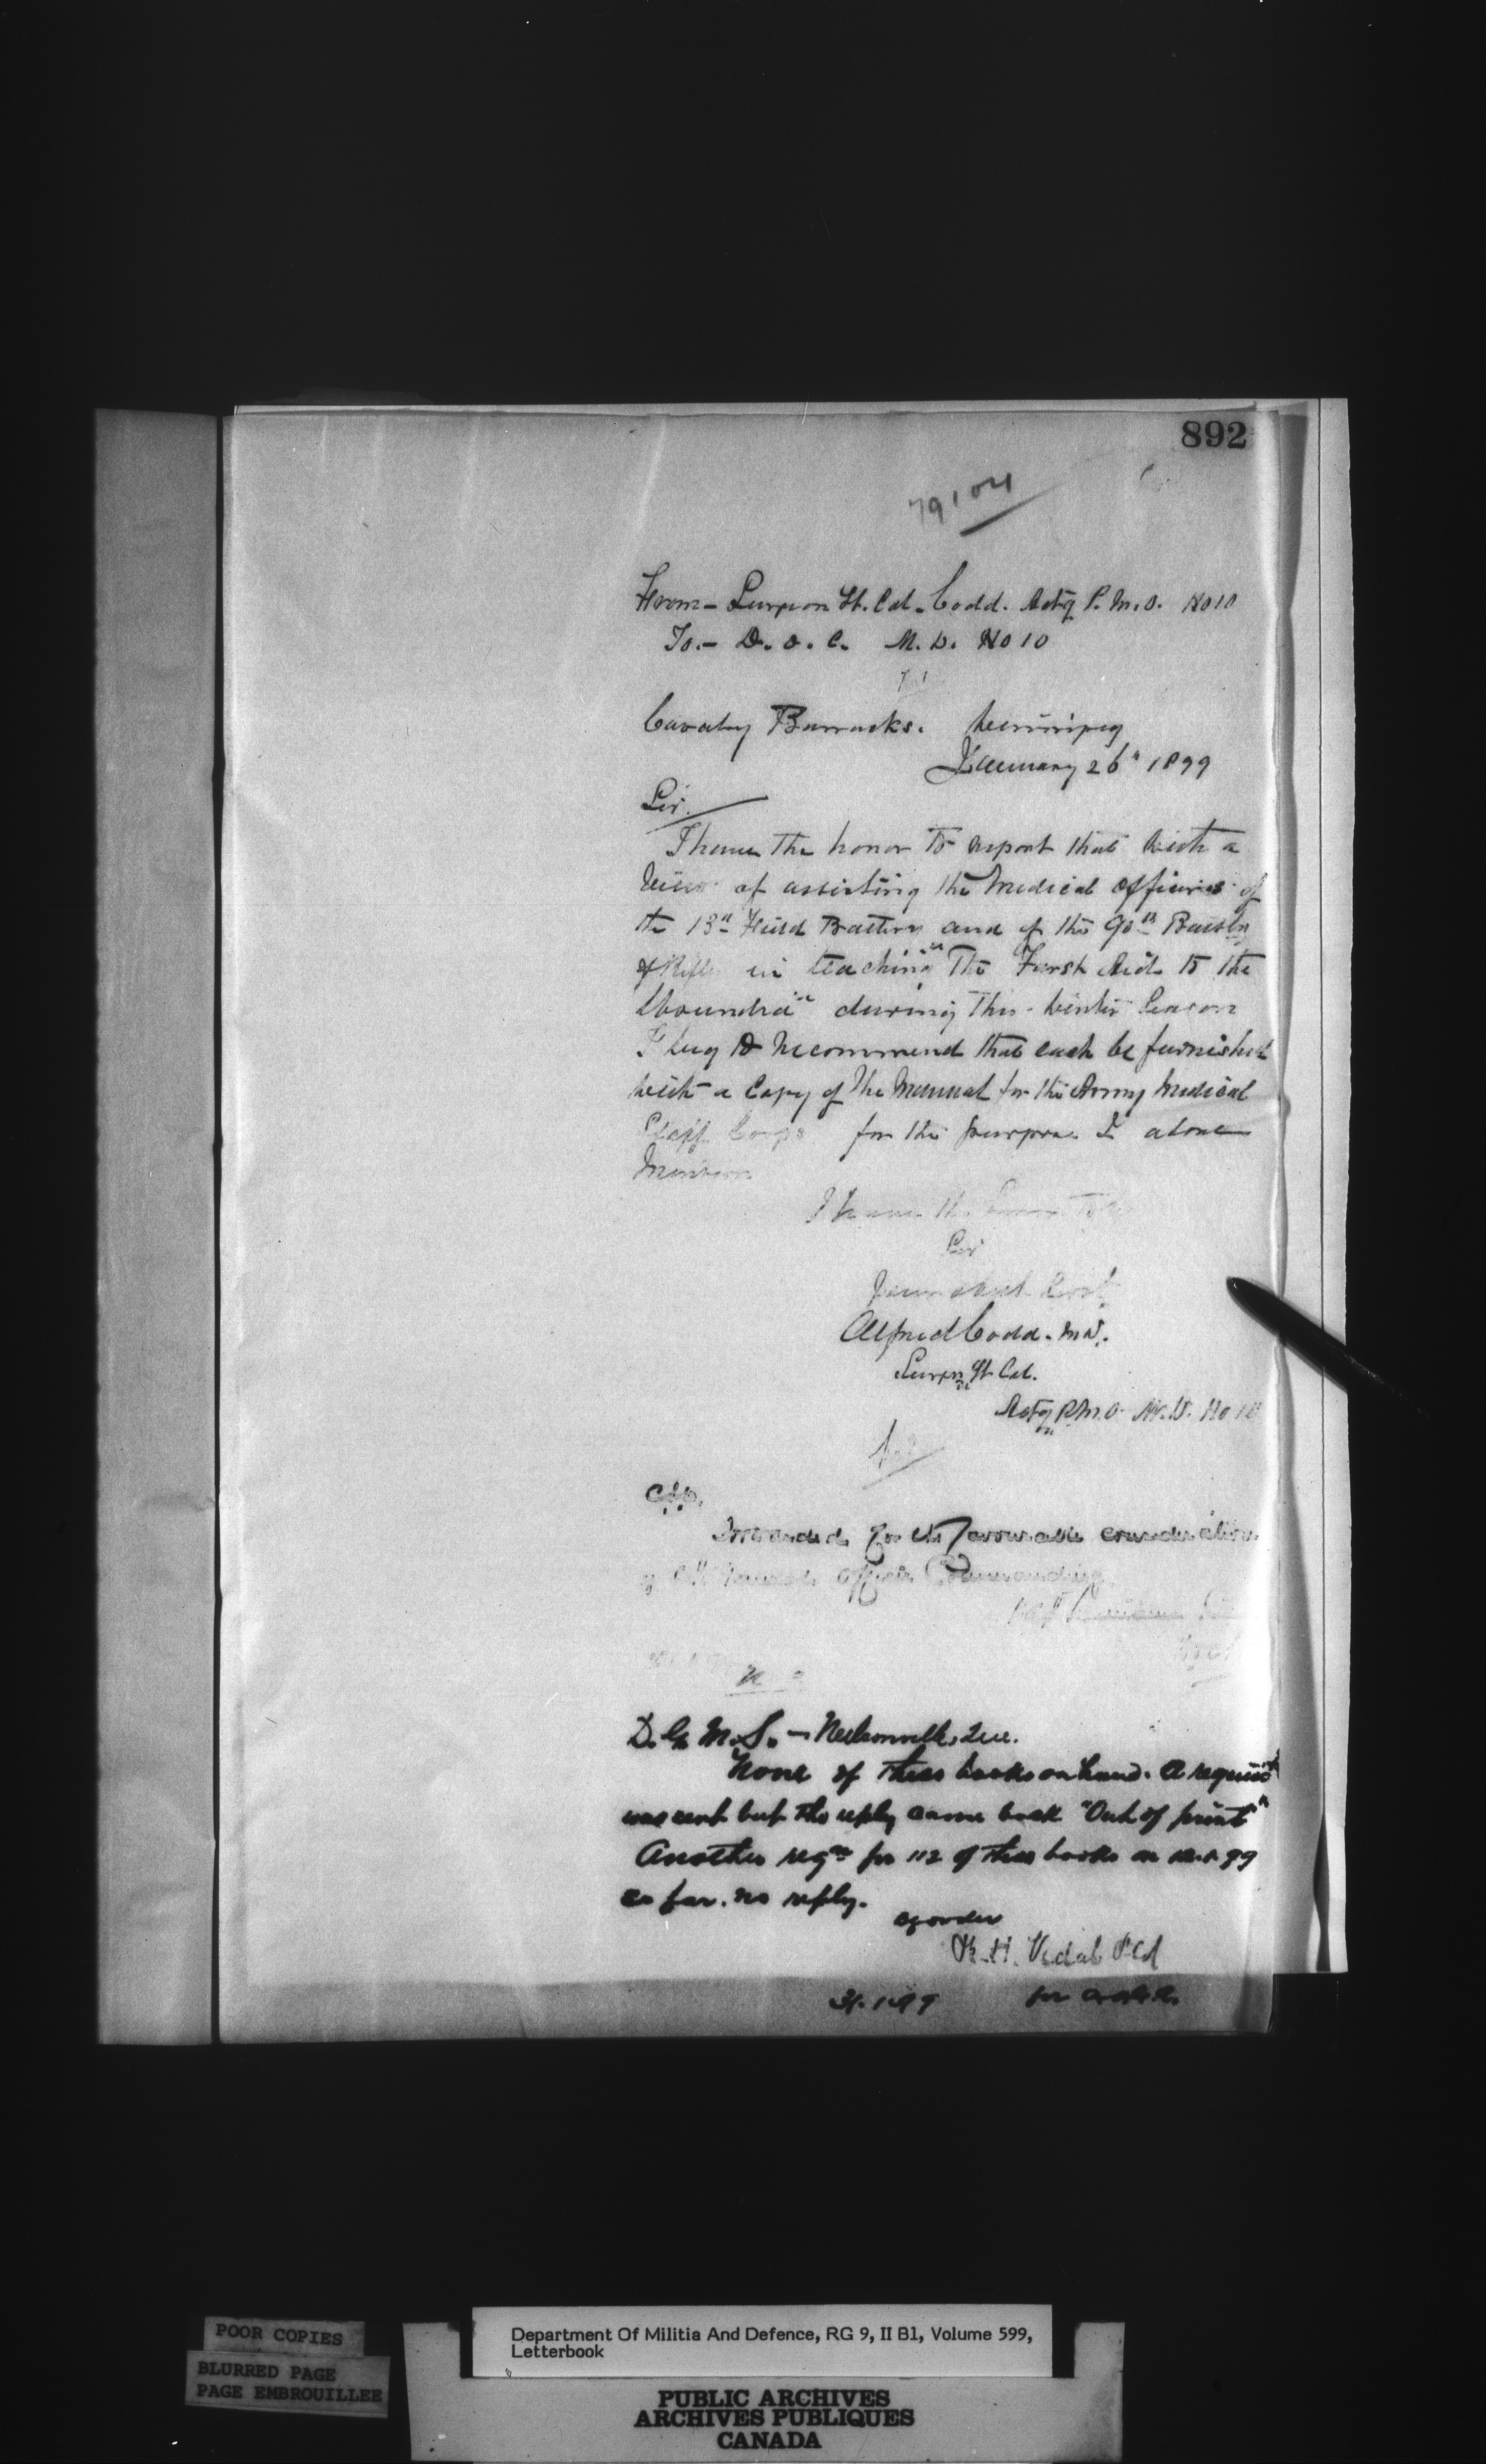 892
79104
From - Surgeon Lt. Col. Codd. Actg P.M.O. No 10
To. - D.O.C. M.D. No 10
Cavalry Barracks. Winnipeg
January 26" 1899
Sir.
I have the honor to report that with a
view of assisting the Medical officers of
the 13th Field Battery and of the 90th Battn
of Rifles in teaching "The First Aid to the
Wounded" during this winter season
I beg to recommend that each be furnished
with a Copy of the Manual for the Army Medical
Staff Corps for the purpose I above
Mention
I have the honor to be
Sir
Your obedt Servt
Alfred Codd. M.D.
Surgn Lt Col.
Actg P.M.O. M.D. No 10
C.S.O.
Forwarded for the favourable consideration
of the General Officer Commanding
D.G.M.S. - Neilsonville, Que.
None of these books on hand. A requisitn
was sent but the reply came back "Out of print"
Another reqn for 112 of these books on 99
so far. no reply.
By order
B.H. Vidal
31.1.99 for
POOR COPIES
BLURRED PAGE
PAGE EMBROUILLEE
Department Of Militia And Defence, RG 9, II B1, Volume 599,
Letterbook
PUBLIC ARCHIVES
ARCHIVES PUBLIQUES
CANADA